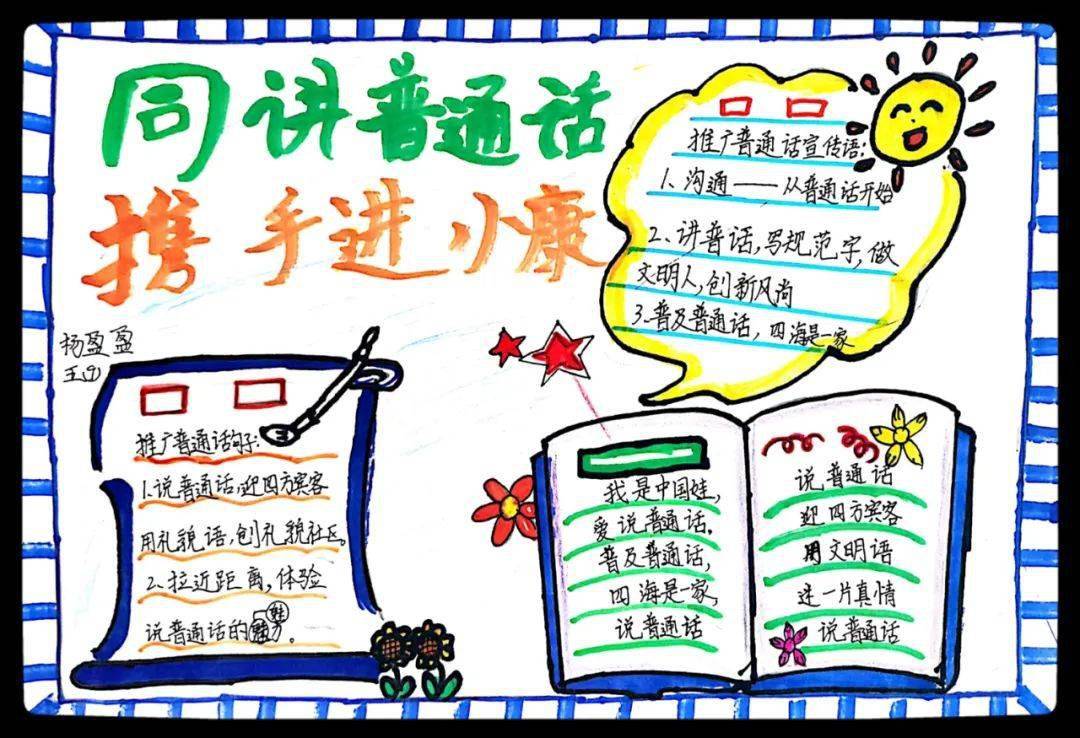 同讲普通话
携手进小康
杨盈盈
推广普通话宣传语:
1、沟通——从普通话开始
2、讲普话,写规范字,做
文明人,创新风尚
3、普及普通话,四海是一家
推广普通话句子:
1.说普通话,迎四方宾客
用礼貌语,创礼貌社区。
2、拉近距离,体验
说普通话的
我是中国娃,
爱说普通话.
普及普通话,
四海是一家,
说普通话
说普通话
迎四方宾客
用文明语
送一片真情
说普通话